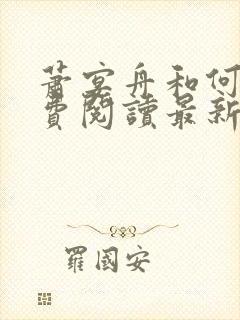 蕭宴舟和何
費閱讀最新
羅國安